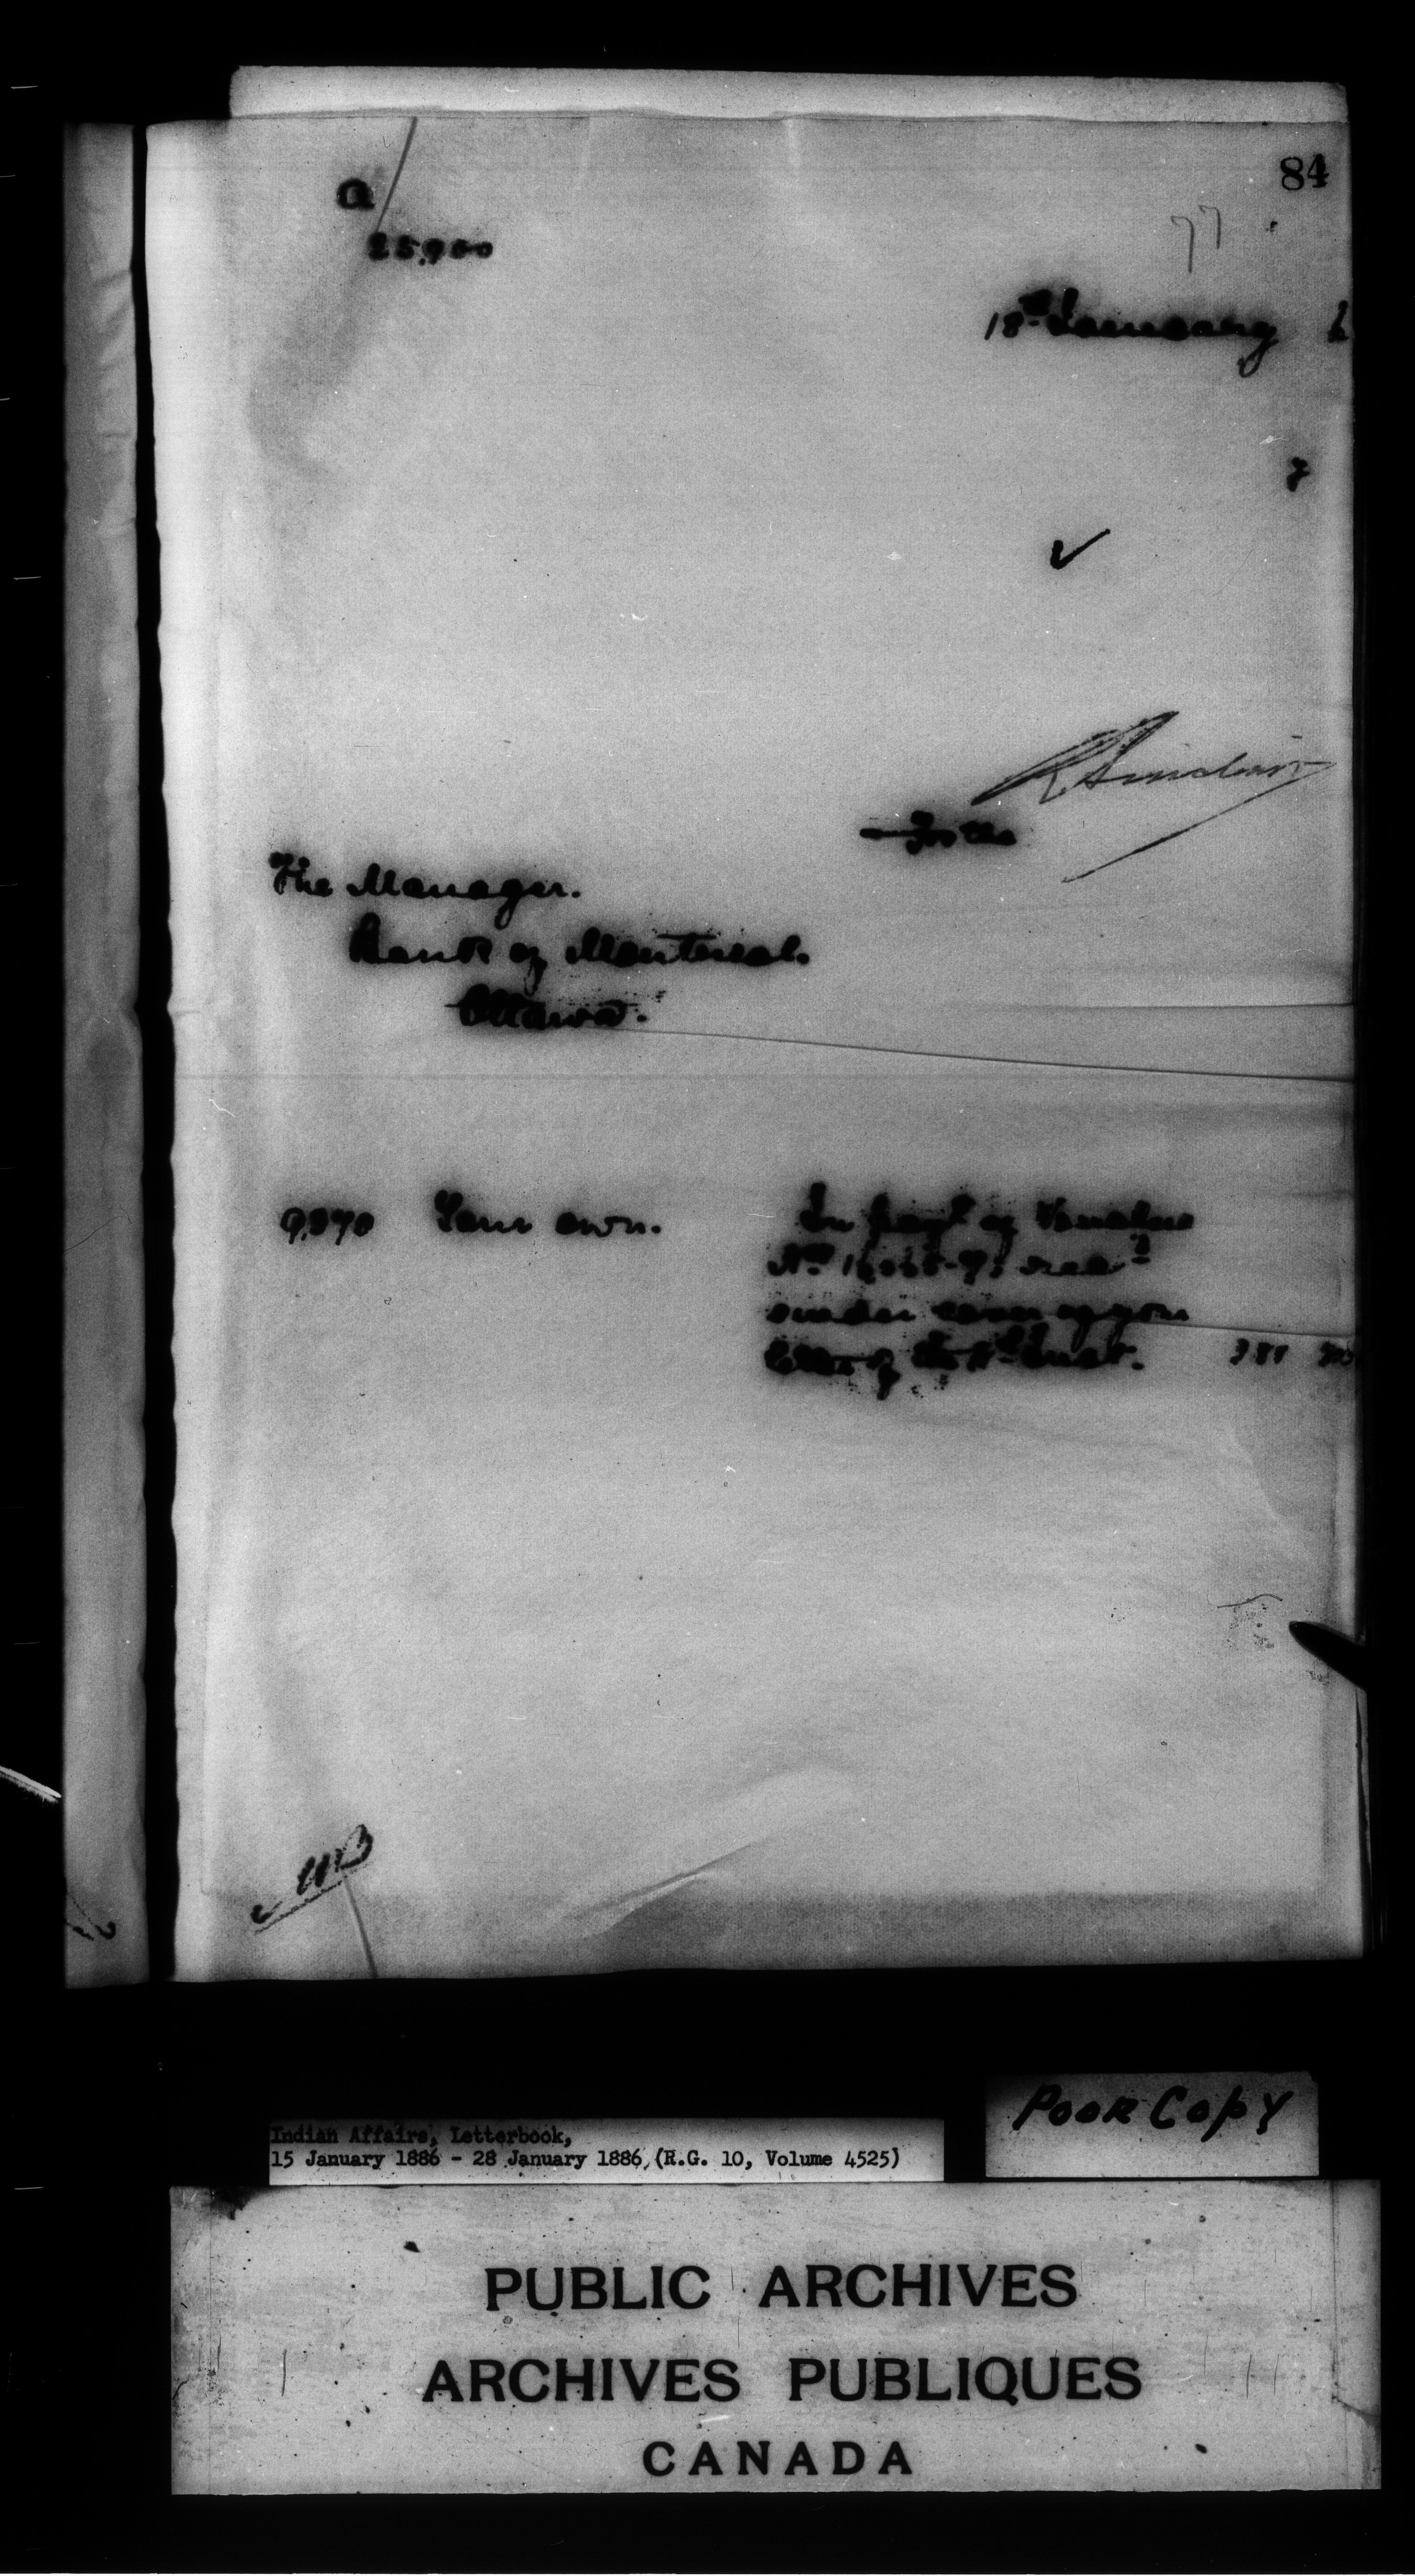 84
77
25,900
18th January 6
R Sinclair
For the
The Manager.
Bank of Montreal.
Ottawa.
9,870 Your own. In payt of Vouchers
recd
under cover of your
letter of inst.
Poor Copy
Indian Affairs, Letterbook,
15 January 1886 - 28 January 1886, (R.G. 10, Volume 4525)
PUBLIC ARCHIVES
ARCHIVES PUBLIQUES
CANADA